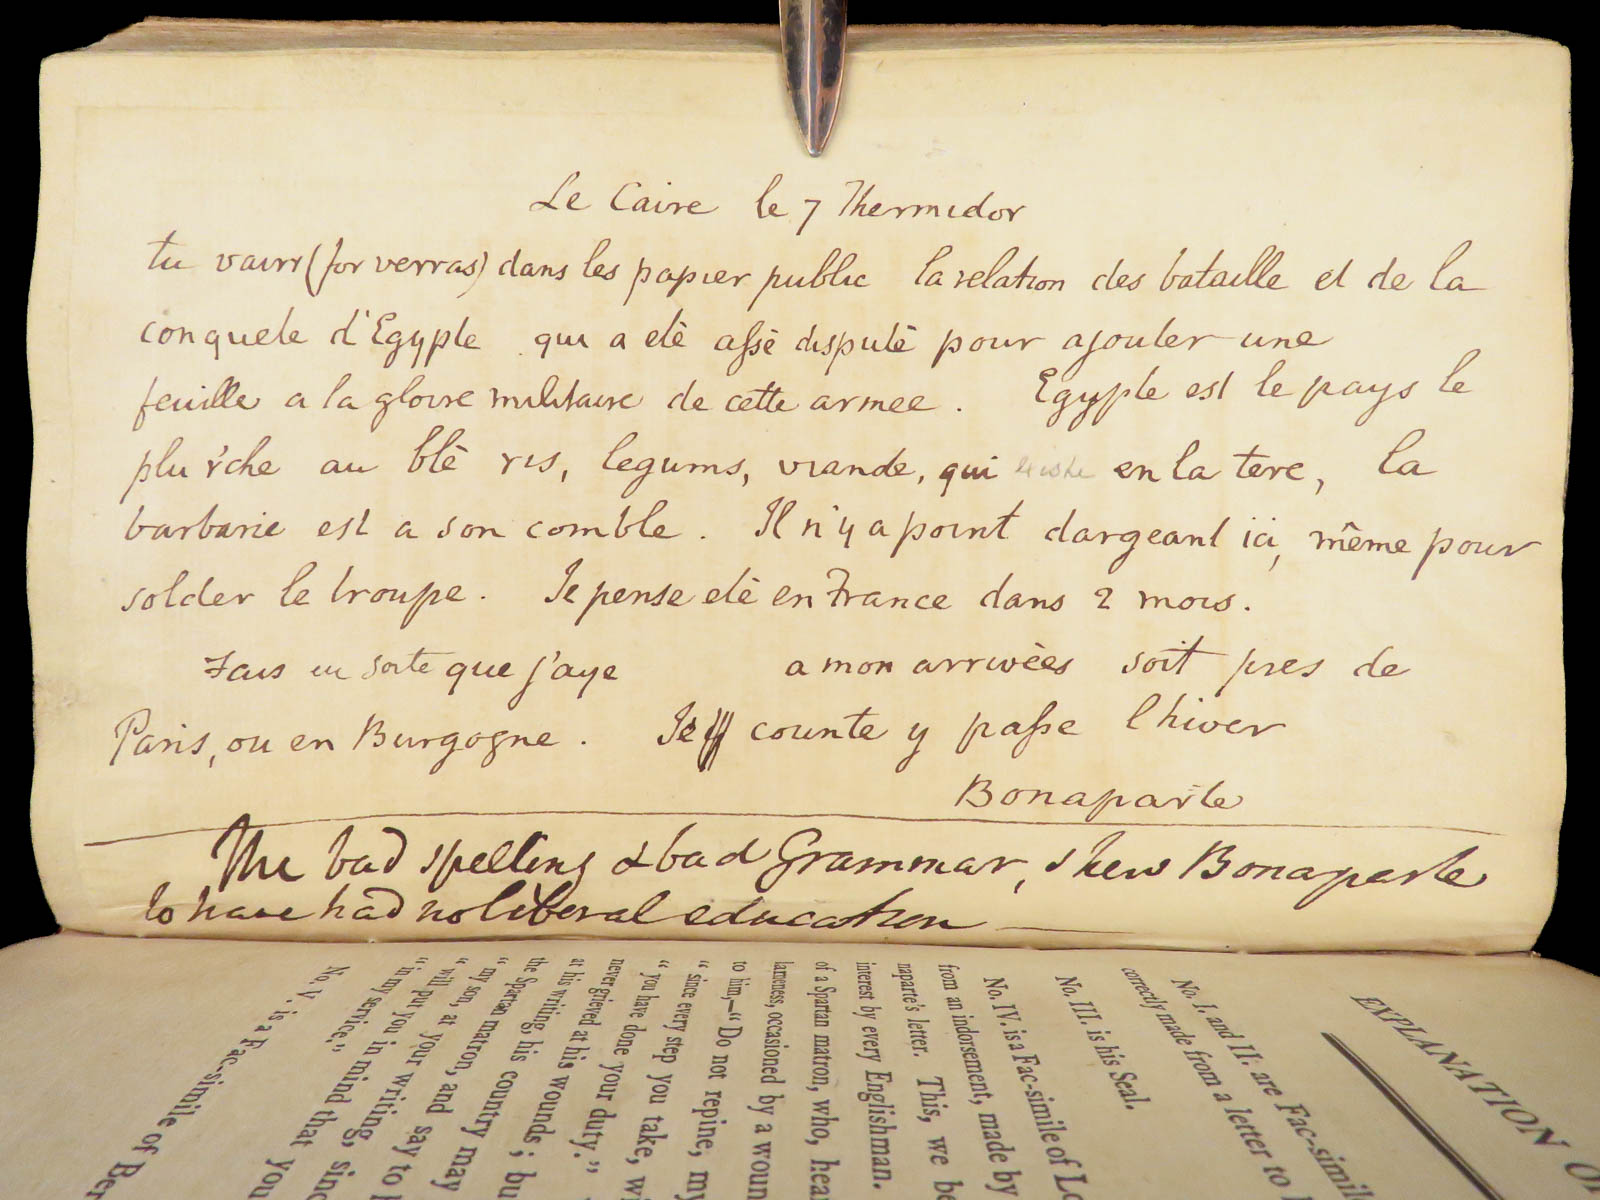 Le Caire le 7 Thermidor
tu vairr (for verras) dans les papier public la relation des bataille et de la
conquete d'Egypte qui a etè assè disputè pour ajouter une
feuille a la gloire militaire de cette armee. Egypte est le pays le
plu riche au blè ris, legums, viande, qui en la tere, la
barbarie est a son comble. Il n'y a point dargeant ici, même pour
solder le troupe. Je pense etè en France dans 2 mois.
Fais en sorte que j'aye a mon arrivèes soit pres de
Paris, ou en Burgogne. Je counte y passe l hiver
Bonaparte
The bad spelling & bad Grammar, shew Bonaparte
to have had no liberal education
EXPLANATION
No. I. and II. are Fac-simil
correctly made from a letter to
No. III. is his Seal.
No. IV. is a Fac-simile of Lo
from an indorsement, made by
naparte's letter. This, we be
interest by every Englishman.
of a Spartan matron, who, hea
lameness, occasioned by a woun
to him,—“ Do not repine; my
“ since every step you take, wi
“ you have done your duty.”
never grieved at his wounds; bu
at his writing, his country may
the Spartan matron, and say to
“ my son, at your writing, sinc
“ will put you in mind that you
“ in my service.”
No. V. is a Fac-simile of Ber